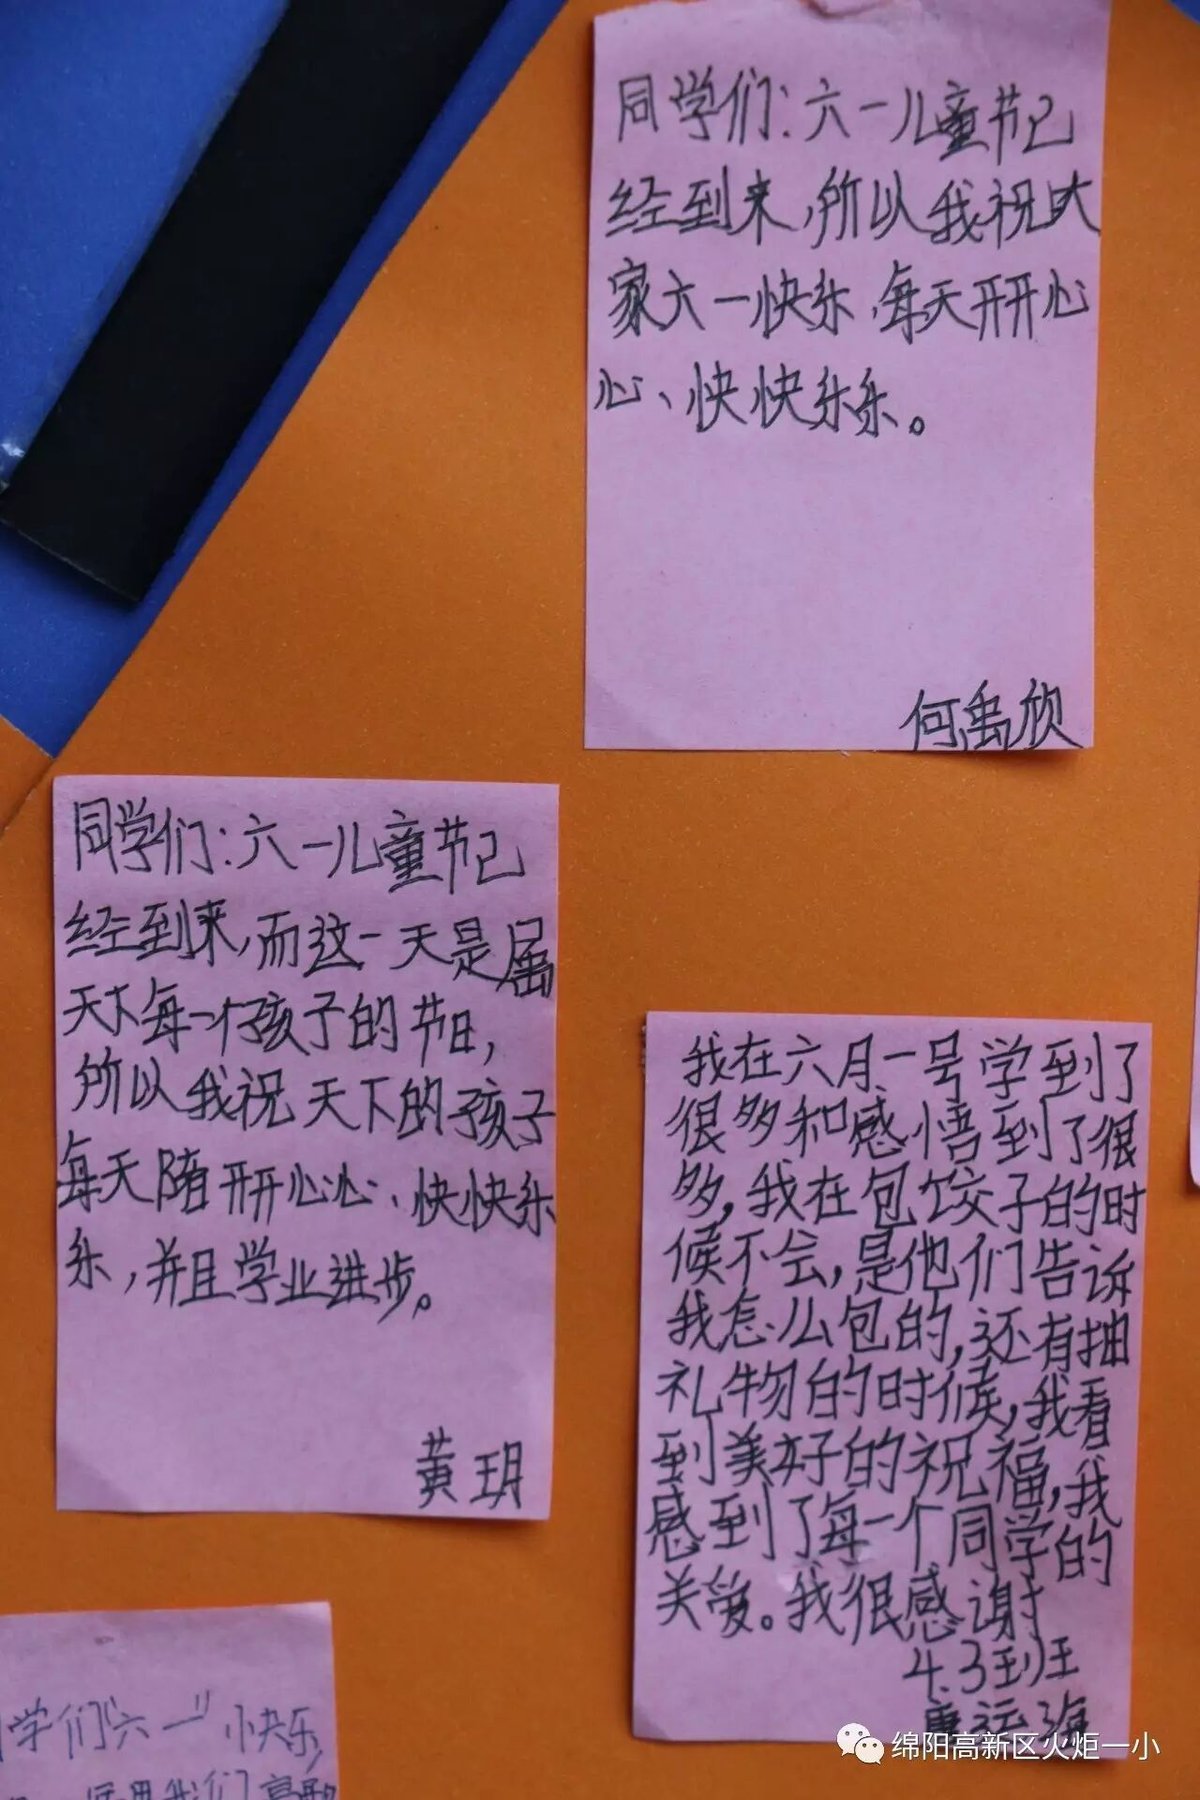 同学们：六一儿童节已
经到来，所以我祝大
家六一快乐，每天开开心
心、快快乐乐。
何禹欣
同学们：六一儿童节已
经到来，而这一天是属
天下每一个孩子的节日，
所以我祝天下的孩子
每天开开心心、快快乐
乐，并且学业进步。
黄玥
我在六月一号学到了
很多和感悟到了很
多，我在包饺子的时
候不会，是他们告诉
我怎么包的，还有抽
礼物的时候，我看
到美好的祝福，我
感到了每一个同学的
关爱。我很感谢
4.3到班
运海
学们“六一”快乐，
我们
绵阳高新区火炬一小